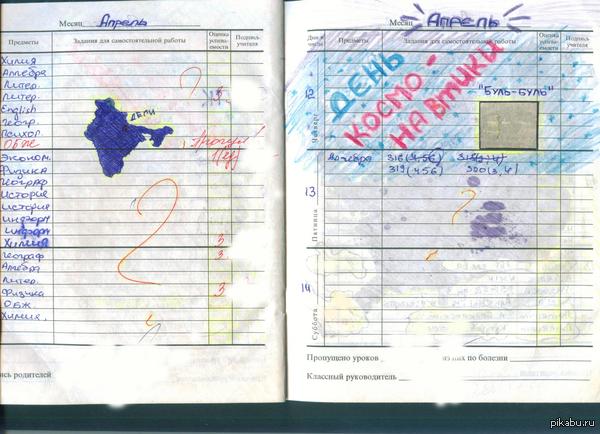 Месяц Апрель
Предметы
Задания для самостоятельной работы
Оценка успева- емости
Подпись учителя
Химия
Алгебра
Литер.
Литер.
English
Геогр.
Психол
ОБЖ
Эконом.
Физика
Географ
История
История
Информ
Информ
Химия 3
Географ 3
Алгебра
Литер.
Физика 3
ОБЖ.
Химия.
ДЕЛИ
2
ись родителей
Месяц АПРЕЛЬ
Дни и числа
Предметы
Задания для самостоятельной работы
Оценка успева- емости
Подпись учителя
ДЕНЬ
КОСМО-
НАВТИКИ
"БУЛЬ-БУЛЬ"
12
Четверг
Алгебра 316(4,5,6)
319(4,5,6) 320(3,4)
13
Пятница
14
Суббота
Пропущено уроков из них по болезни
Классный руководитель
pikabu.ru